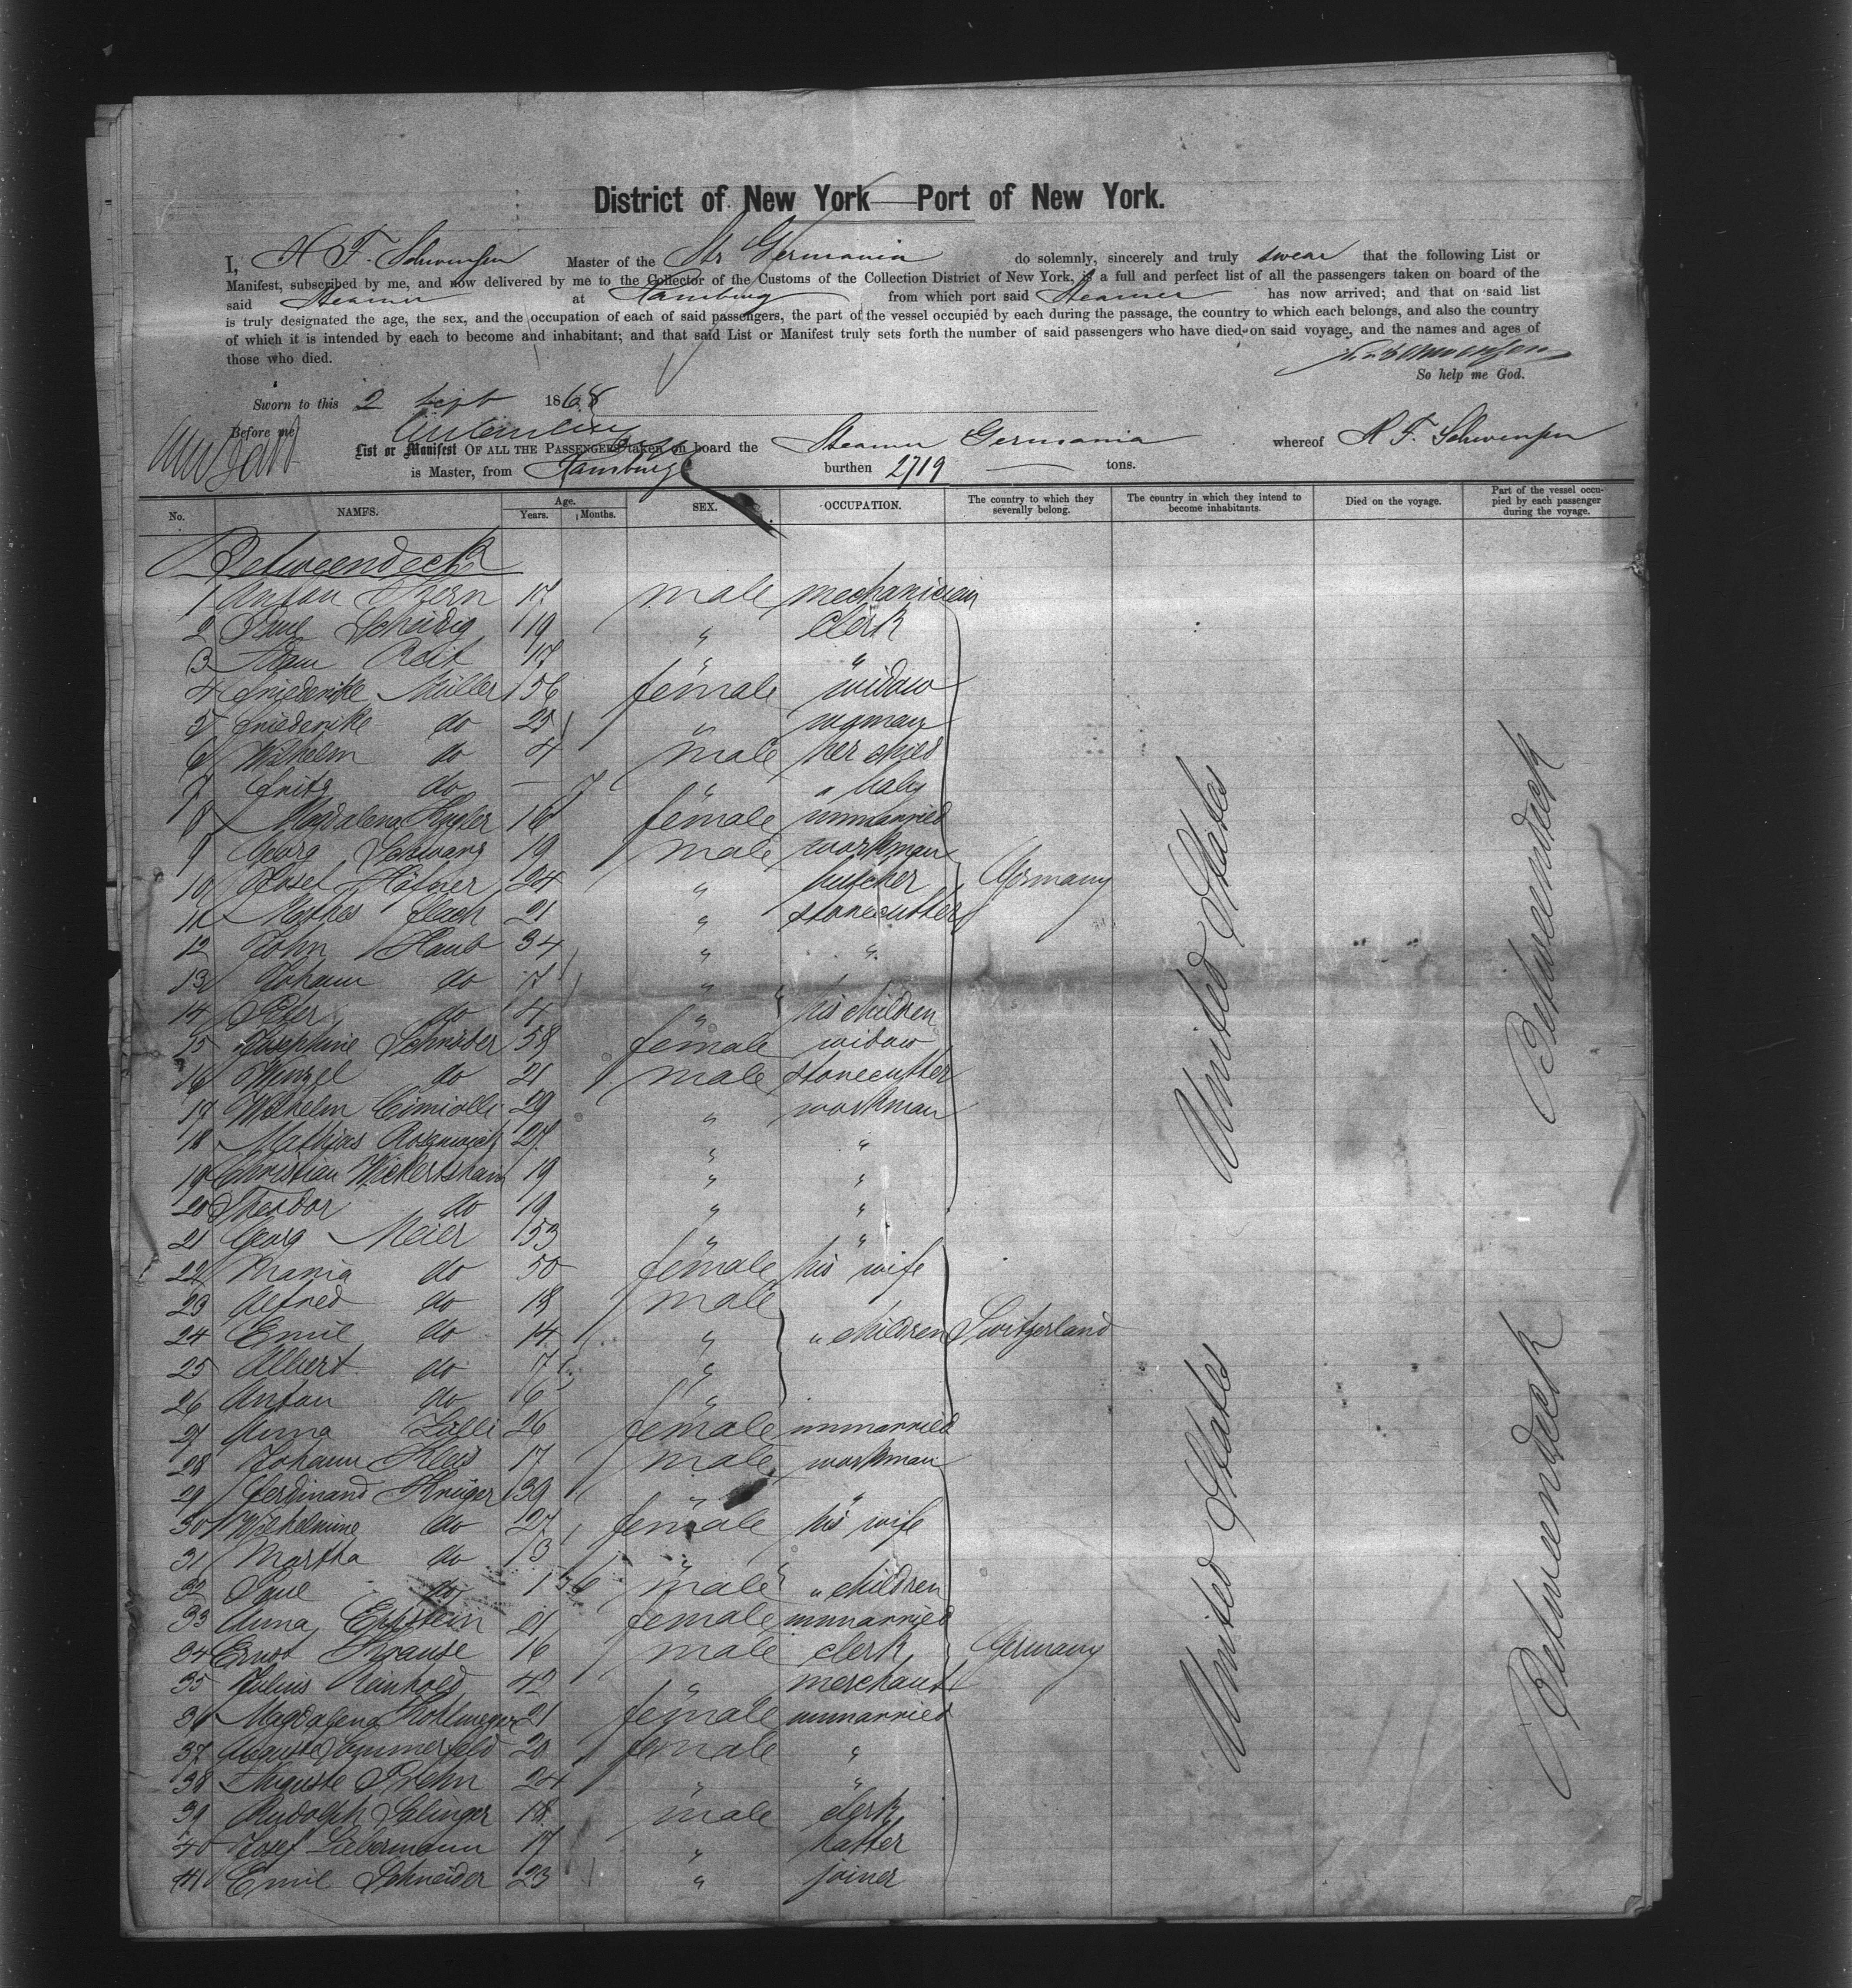 District of New York—Port of New York.
I, H F. Schwensen Master of the Str Germania do solemnly, sincerely and truly swear that the following List or
Manifest, subscribed by me, and now delivered by me to the Collector of the Customs of the Collection District of New York, is a full and perfect list of all the passengers taken on board of the
said Steamer at Hamburg from which port said Steamer has now arrived; and that on said list
is truly designated the age, the sex, and the occupation of each of said passengers, the part of the vessel occupied by each during the passage, the country to which each belongs, and also the country
of which it is intended by each to become and inhabitant; and that said List or Manifest truly sets forth the number of said passengers who have died on said voyage, and the names and ages of
those who died.
So help me God.
Sworn to this 2 Sept 1868
Before me
List or Manifest OF ALL THE PASSENGERS taken on board the Steamer Germania whereof H F. Schwensen
is Master, from Hamburg burthen 2719 tons.
No. NAMES. Age. Years. Months. SEX. OCCUPATION. The country to which they severally belong. The country in which they intend to become inhabitants. Died on the voyage. Part of the vessel occupied by each passenger during the voyage.
Betweendeck
1 Anton 17 male mechanician
2 Paul 19 " clerk
3 Adam 17 " "
4 Friederike Müller 56 female widow
5 Friederike do 25 " woman
6 Wilhelm do 4 male her child
7 Fritz do — 7 " " baby
8 Magdalena 16 female unmarried
9 Georg Schwarz 19 male workman
10 Josef Höfner 24 " butcher Germany
11 21 " stonecutter
12 John Haub 34 " "
13 Johann do 7 "
14 Peter do 4 " his children
15 Josephine Schröder 58 female widow
16 Wenzel do 21 male stonecutter
17 Wilhelm Cimiolli 29 " workman
18 Mathias 27 " "
19 Christian Wickertsham 19 " "
20 Theodor do 19 " "
21 Georg Meier 53 " "
22 Maria do 50 female his wife
23 Alfred do 18 male
24 Emil do 14 " " children Switzerland
25 Albert do 7 "
26 Anton do 6 "
27 Anna 26 female unmarried
28 Johann 17 male workman
29 Ferdinand Krüger 39 " "
30 Wilhelmine do 27 female his wife
31 Martha do 3 "
32 Paul do 1 6 male " children
33 Anna Eppstein 21 female unmarried
34 Ernst Krause 16 male clerk Germany
35 Julius Reinhold 42 " merchant
36 Magdalena Kohlmeyer 21 female unmarried
37 Auguste Sommerfeld 20 female "
38 Auguste Prehn 24 " "
39 Rudolph Selinger 18 male clerk
40 Josef Liebermann 17 " hatter
41 Emil Schneider 23 " joiner
United States
Betweendeck
United States
Betweendeck